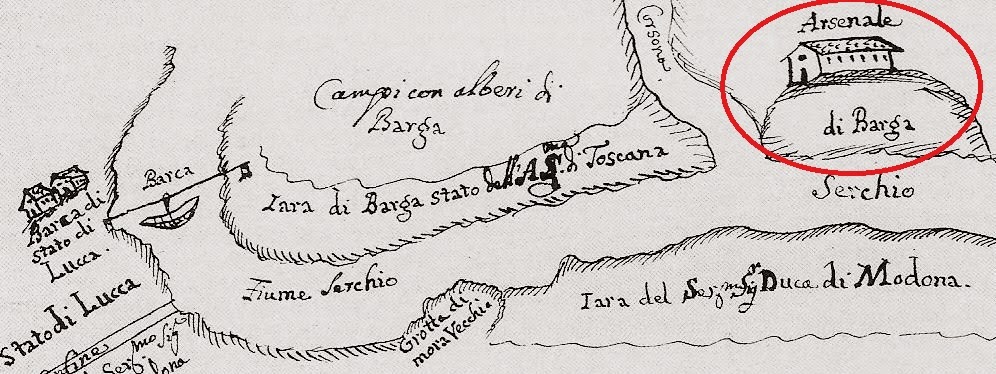 Arsenale
di Barga
Corsona
Campi con alberi di
Barga
Barca
Iara di Barga stato dell'A. S.ma di Toscana
Serchio
Barca di
stato di
Lucca
Fiume Serchio
Stato di Lucca
Grotta di
mora Vecchia
Iara del Ser.mo Sig.r Duca di Modona.